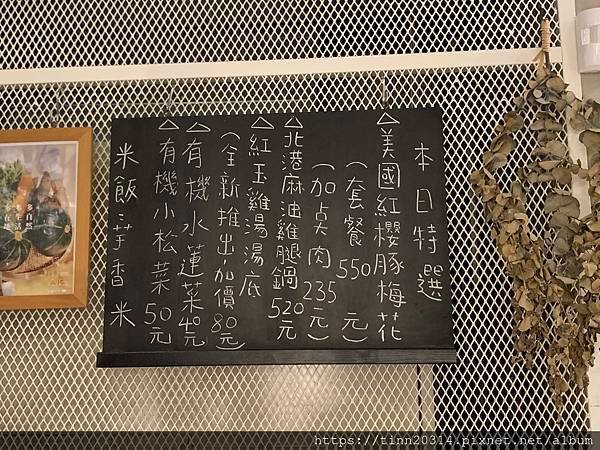 本日特選
△美國紅櫻豚梅花
(套餐 550 元)
(加点肉 235 元)
△北港麻油雞腿鍋 520元
△紅玉雞湯湯底
(全新推出加價 80元)
△有機水蓮菜 40元
△有機小松菜 50元
米飯:芋香米
https://tinn20314.pixnet.net/album